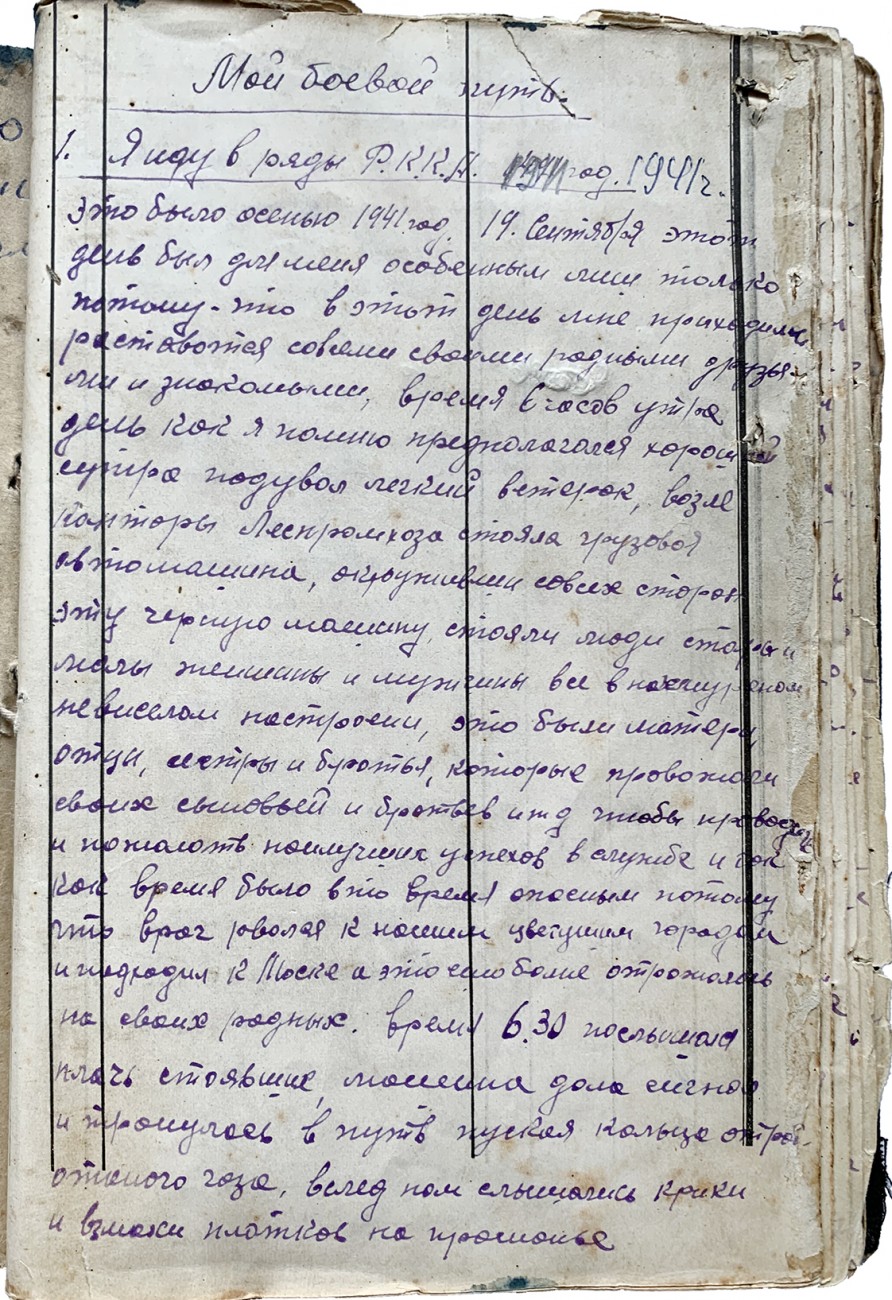 Мой боевой путь.
1. Я иду в ряды Р.К.К.А. год. 1941 г.
Это было осенью 1941 год. 19. Сентября этот
день был для меня особенным лиш только
потому-что в этот день мне приходилось
раставатся совсеми своими родными друзья-
ми и знакомыми, время 6 часов утра
день как я помню предполагался хороший
сутра подувал легкий ветерок, возле
канторы Леспромхоза стояла грузовая
автомашина, окружившии совсех сторон
эту черную машину, стояли люди стары и
малы женщины и мужчины все в нахмуреном
невиселом настроени, это были матери,
отцы, сестры и братья, которые провожали
своих сыновьей и братьев итд чтобы
и пожалать наилучших успехов в службе и так
как время было вто время опасным потому
что враг рвался к нашим цветущим городам
и подходил к Москве а это ещо болие отрожалась
на своих родных. Время 6.30 послышался
плачь стоявших, машина дала сигнал
и тронулась в путь пуская кальца отра-
отаного газа, вслед нам слышались крики
и взмахи платков на прощанье